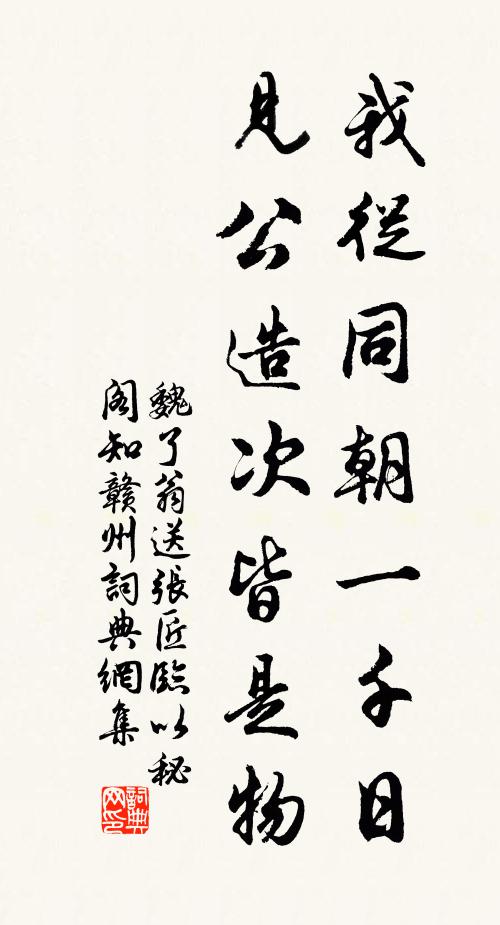 我從同朝一千日
見公造次皆是物
魏了翁送張匠臨以秘
閣知贛州詞典網集
詞典
网印